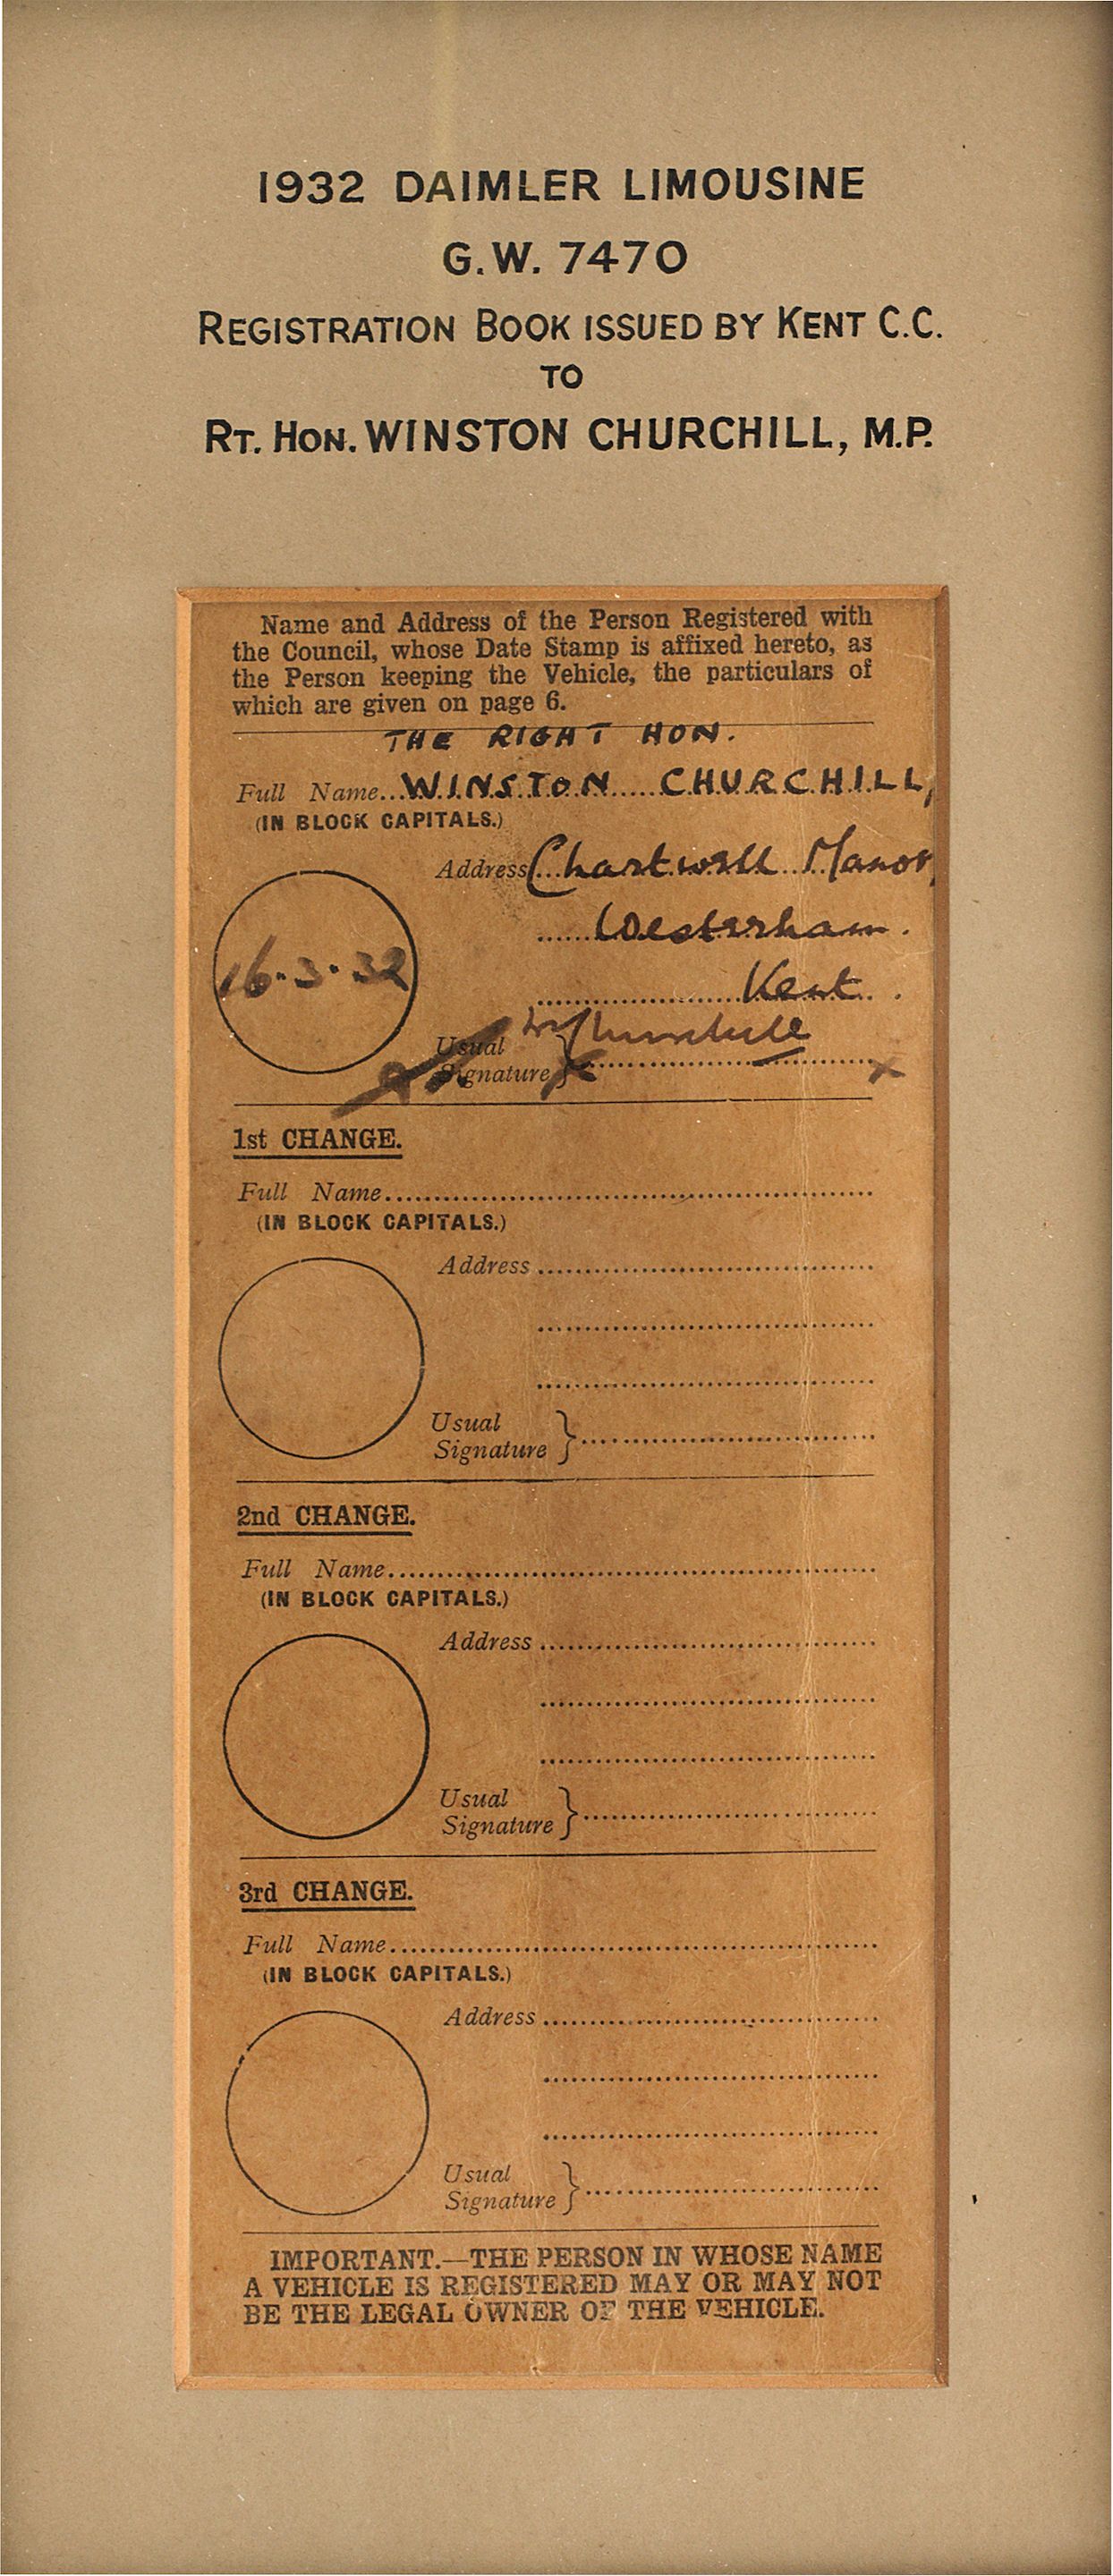 1932 DAIMLER LIMOUSINE
G.W. 7470
REGISTRATION BOOK ISSUED BY KENT C.C.
TO
RT. HON. WINSTON CHURCHILL, M.P.
Name and Address of the Person Registered with
the Council, whose Date Stamp is affixed hereto, as
the Person keeping the Vehicle, the particulars of
which are given on page 6.
THE RIGHT HON.
Full Name...WINSTON.....CHURCHILL,
(IN BLOCK CAPITALS.)
Address...Chartwell Manor,
......Westerham.
16.3.32
Kent.
W Churchill
Usual
Signature } x
1st CHANGE.
Full Name
(IN BLOCK CAPITALS.)
Address
Usual
Signature }
2nd CHANGE.
Full Name
(IN BLOCK CAPITALS.)
Address
Usual
Signature }
3rd CHANGE.
Full Name
(IN BLOCK CAPITALS.)
Address
Usual
Signature }
IMPORTANT.—THE PERSON IN WHOSE NAME
A VEHICLE IS REGISTERED MAY OR MAY NOT
BE THE LEGAL OWNER OF THE VEHICLE.